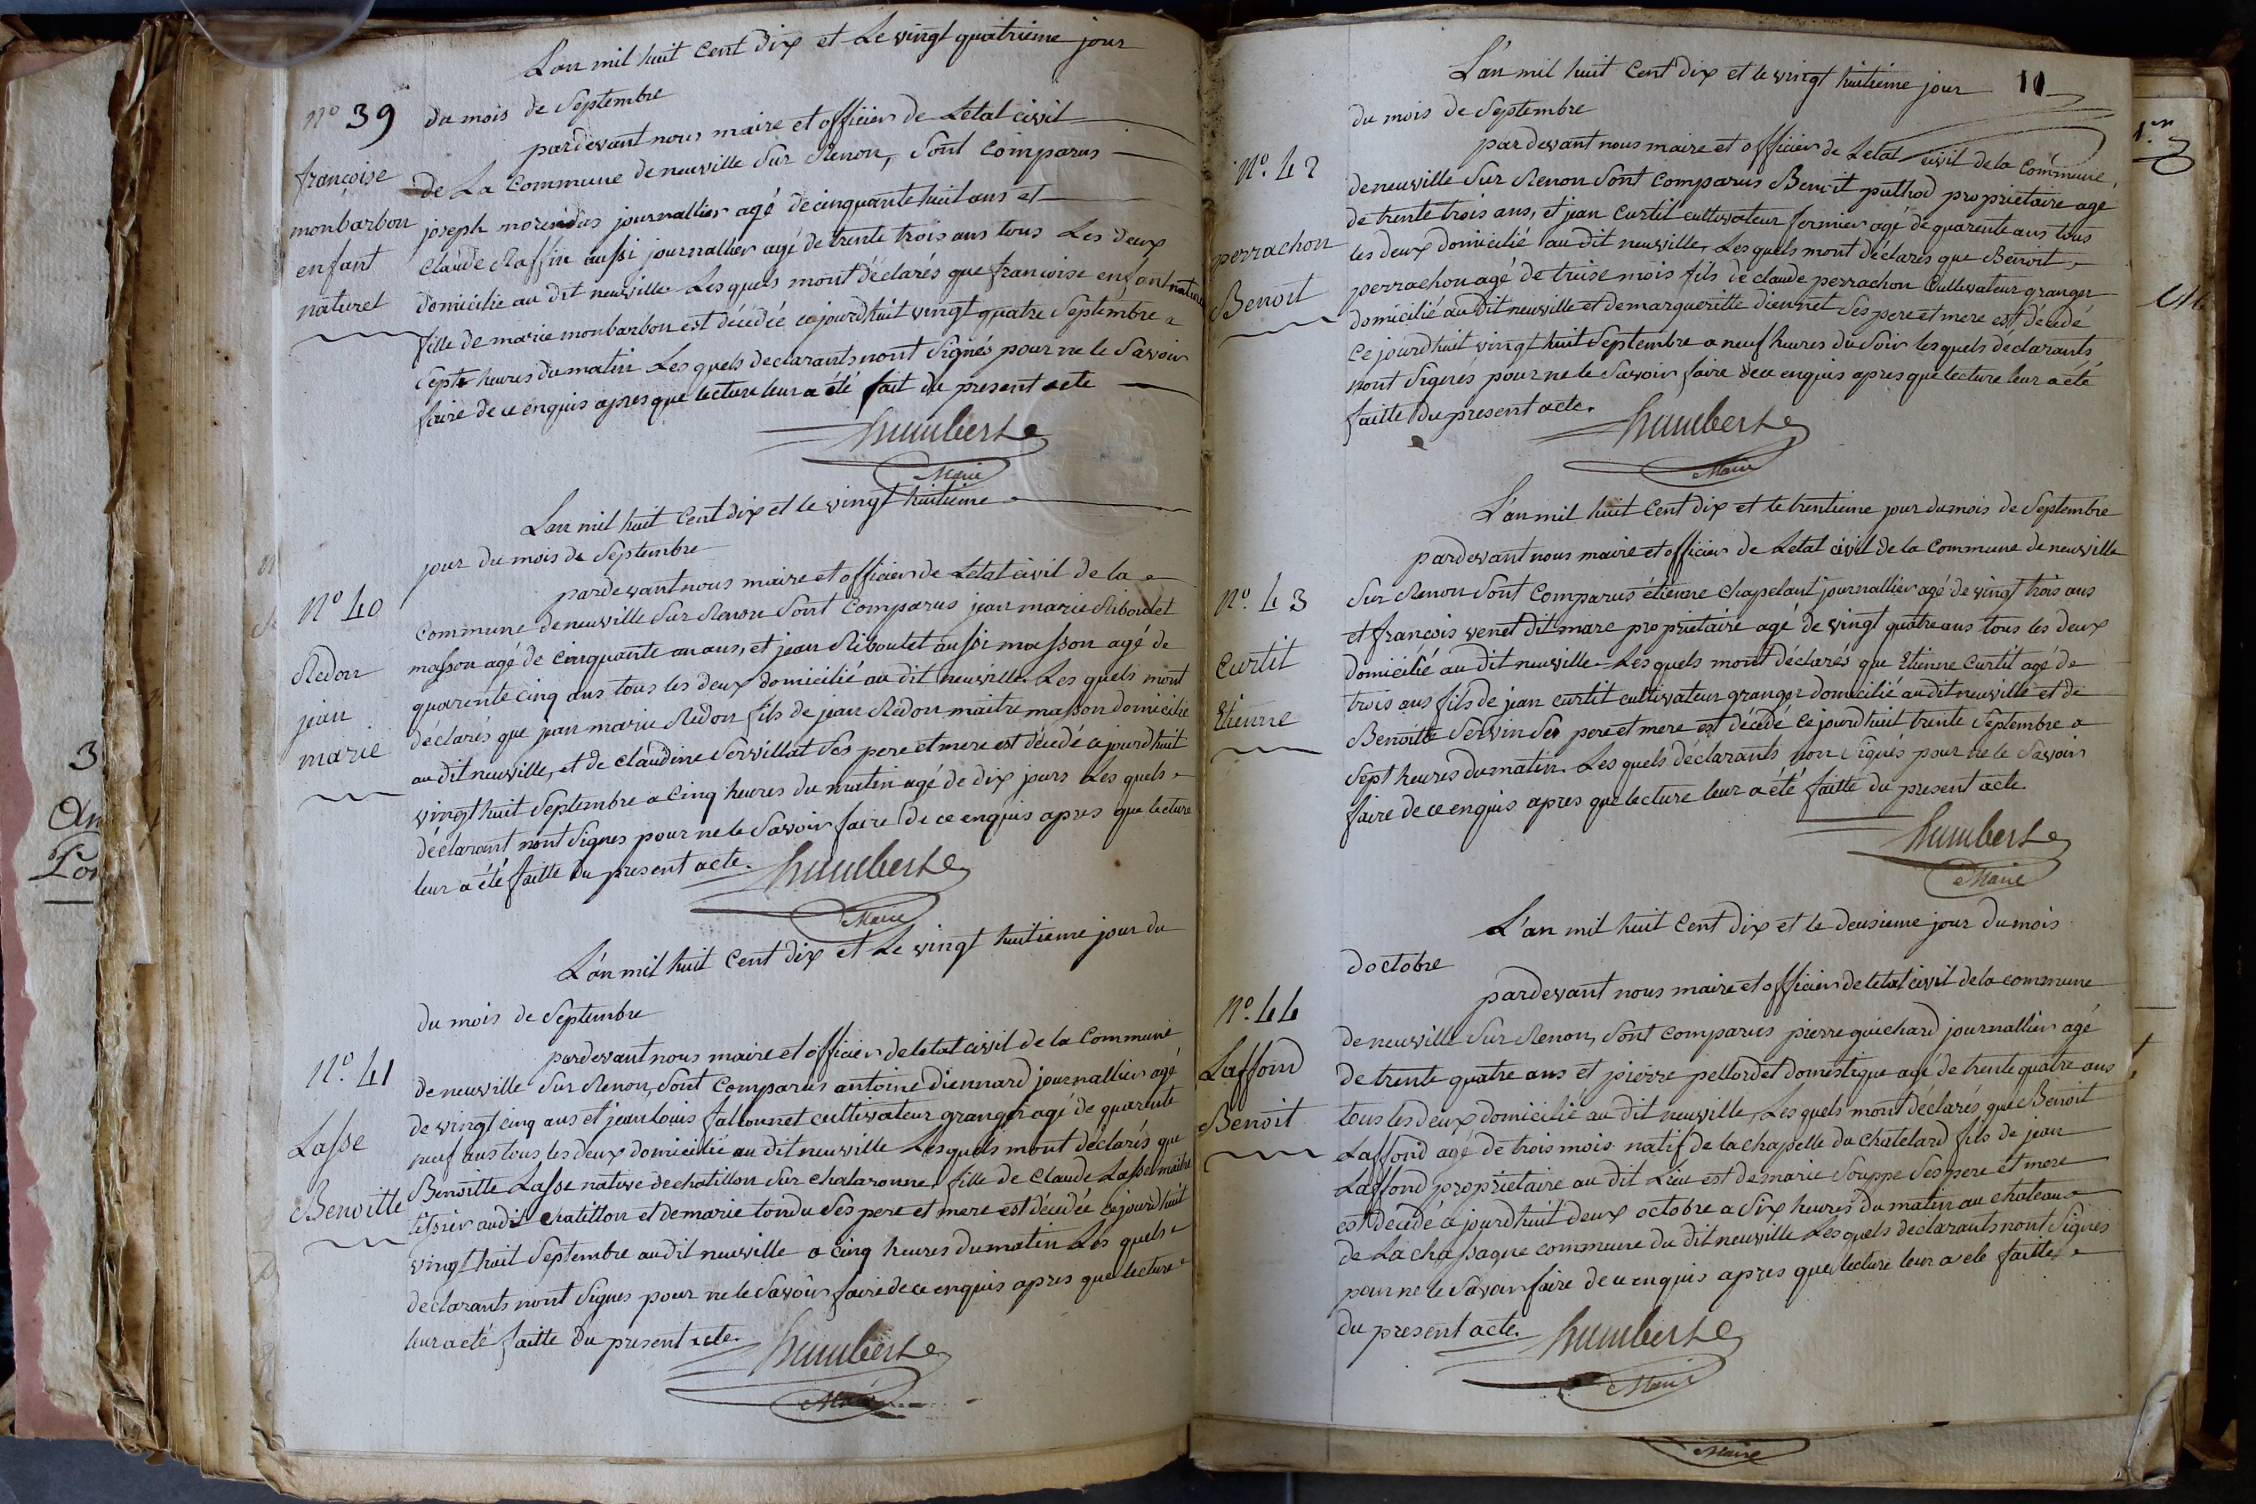 L'an mil huit Cent Dix et Le vingt quatrieme jour
Nº 39
du mois de Septembre
pardevant nous maire et officier de L'etat civil
françoise
monbarbon
enfant
naturel
de La Commune de neuville Sur Renon, Sont Comparus
joseph journallier agé de cinquante huit ans et
Claude Raffin aussi journallier agé de trente trois ans tous Les deux
domicilié au dit neuville. Les quels mont déclarés que francoise enfant naturel
fille de marie monbarbon est décédée cejourdhuit vingt quatre Septembre a
Sept heures du matin Les quels declarants nont Signés pour ne le Savoir
faire de ce enquis apres que lecture leur a été fait du present acte
humbert
Maire
Lan mil huit Cent dix et le vingt huitieme
jour du mois de Septembre
Nº 40
Redon
jean
marie
pardevant nous maire et officier de Letat civil de la
Commune de neuville Sur Renon Sont Comparus jean marie Riboulet
masson agé de cinquante un ans, et jean Riboulet aussi masson agé de
quarente cinq ans tous les deux domicilié au dit neuville. Les quels mont
déclarés que jean marie Redon fils de jean Redon maitre masson domicilié
au dit neuville, et de Claudine Servillat Ses pere et mere est décedé cejourdhuit
vingt huit Septembre a Cinq heures du matin agé de dix jours Les quels
déclarant nont Signes pour ne le Savoir faire De ce enquis apres que lecture
leur a été faitte du present acte.
humbert
Maire
L'an mil huit Cent dix et Le vingt huitieme jour du
du mois de Septembre
Nº. 41
Lasse
Benoitte
pardevant nous maire et officier de letat civil de la Commune
de neuville Sur Renon, Sont Comparus antoine Diennard journallier agé
de vingt cinq ans et jean Louis fallonnet cultivateur granger agé de quarente
neuf ans tous les deux domicilié au dit neuville Lesquels mont déclarés que
Benoitte Lasse native de chatillon Sur chalaronne, fille de Claude Lasse maitre
tissier audit chatillon et de marie tondu Ses pere et mere est décedée cejourdhuit
vingt huit Septembre au dit neuville a cinq heures du matin Les quels
declarants nont Signes pour ne le Savoir faire de ce enquis apres que lecture
leur a eté faitte du present acte.
humbert
Maire
L'an mil huit Cent dix et le vingt huitieme jour
10
du mois de Septembre
Nº. 42
perrachon
Benoit
pardevant nous maire et officier de Letat civil de la Commune
de neuville Sur Renon Sont Comparus Benoit puthod proprietaire agé
de trente trois ans, et jean Curtil cultivateur fermier agé de quarente ans tous
les deux domicilié au dit neuville, Les quels mont déclarés que Benoit
perrachon agé de treise mois fils de claude perrachon Cultivateur granger
domicilié au Dit neuville et de margueritte Diennet Ses pere et mere est décedé
Ce jourdhuit vingt huit Septembre a neuf heures du Soir lesquels déclarants
nont Signés pour ne le Savoir faire de ce enquis apres que lecture leur a été
faitte Du present acte.
humbert
Maire
L'an mil huit Cent dix et le trentieme jour du mois de Septembre
pardevant nous maire et officier de Letat civil de la Commune de neuville
Nº. 43
Curtil
Etienne
Sur Renon Sont Comparus étienne Chapelant journallier agé de vingt trois ans
et françois venet dit marc proprietaire agé de vingt quatre ans tous les deux
domicilié au dit neuville Lesquels mont déclarés que Etienne Curtil agé de
trois ans fils de jean curtil cultivateur granger domicilié au dit neuville et de
Benoitte Servin Ses pere et mere est décedé Cejourdhuit trente Septembre a
Sept heures du matin. Les quels déclarants non Signés pour ne le Savoir
faire de ce enquis apres que lecture leur a été faitte du present acte.
humbert
Maire
L'an mil huit Cent dix et le deusieme jour du mois
doctobre
Nº. 44
Laffond
Benoit
pardevant nous maire et officier de letat civil de la commune
de neuville Sur Renon, Sont comparus pierre guichard journallier agé
de trente quatre ans et pierre pellordet domestique agé de trente quatre ans
tous les deux domicilié au dit neuville, Les quels mont déclarés que Benoit
Laffond agé de trois mois natif de la chapelle du chatelard fils de jean
Laffond proprietaire au dit Lieu est de marie Souppe Ses pere et mere
est décedé cejourdhuit deux octobre a Six heures du matin au chateau
de La chassagne commune du dit neuville Les quels declarants nont Signes
pour ne le Savoir faire de ce enquis apres que lecture leur a eté faitte
du present acte.
humbert
Maire
Maire